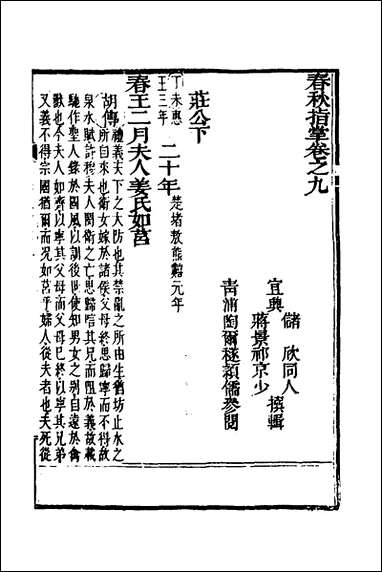 春秋指掌卷之九
儲欣同人
宜興 撰輯
蔣景祁京少
靑浦陶爾穟穎儒參閱
莊公下
丁未惠王三年 二十年 楚堵敖熊囏元年
春王二月夫人姜氏如莒
胡傳 禮義天下之大防也其禁亂之所由生猶坊止水之
所自來也衞女嫁於諸侯父母終思歸寧而不得故
泉水賦許穆夫人閔衞之亡思歸唁其兄而阻於義故載
馳作聖人錄於國風以訓後世使知男女之別自遠於禽
獸也今夫人如齊以寧其父母而父母已終以寧其兄弟
又義不得宗國猶爾而况如莒乎婦人從夫者也夫死從